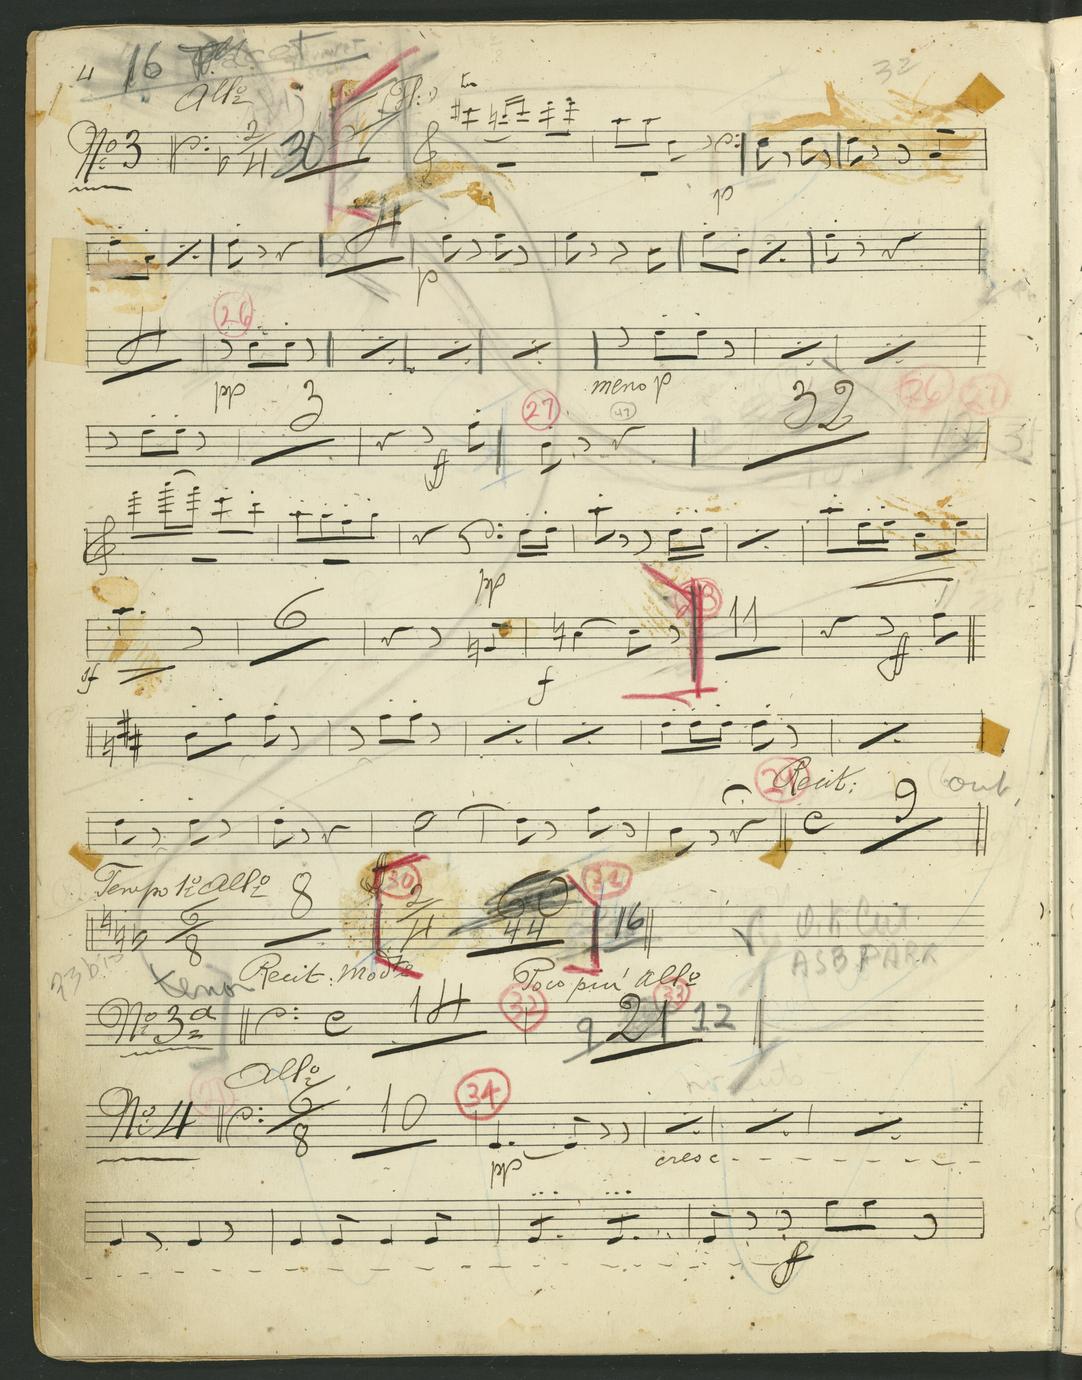 4 16
32
Allo
No 3 2 4 30
p
4
p
4 26
pp meno p
3 27 47 32 26 27
ff
pp
6 28 11
sf f ff
29 Recit: out
9
Tempo 1o Allo
8 30 31
6 8 2 4 44 16
O.K Cut
ASB. PARK
tenor Recit. Modte Poco piu Allo
No 3a 14 32 9 21 33 12
Allo
No 4 6 8 10 34
pp cresc
ff